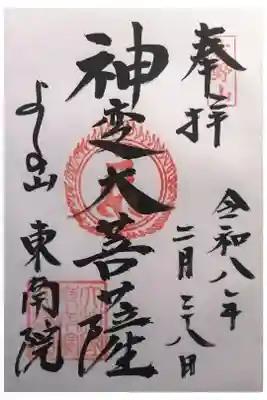 奉拝
令和八年
二月二十八日
神変大菩薩
よしの山 東南院